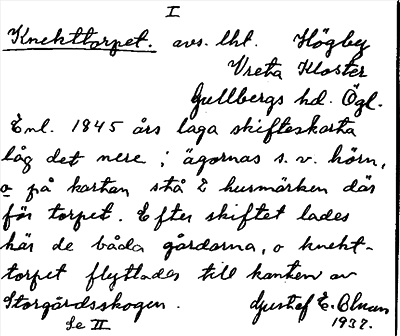 I
Knekttorpet. avs. lht. Högby
Vreta Kloster
Gullbergs hd. Ögl.
Enl. 1845 års laga skifteskarta
låg det nere i ägornas s.v. hörn,
o på kartan stå 2 husmärken där
för torpet. Efter skiftet lades
här de båda gårdarna, o knekt-
torpet flyttades till kanten av
Storgårdsskogen. Gustaf E.
Se II 1932.